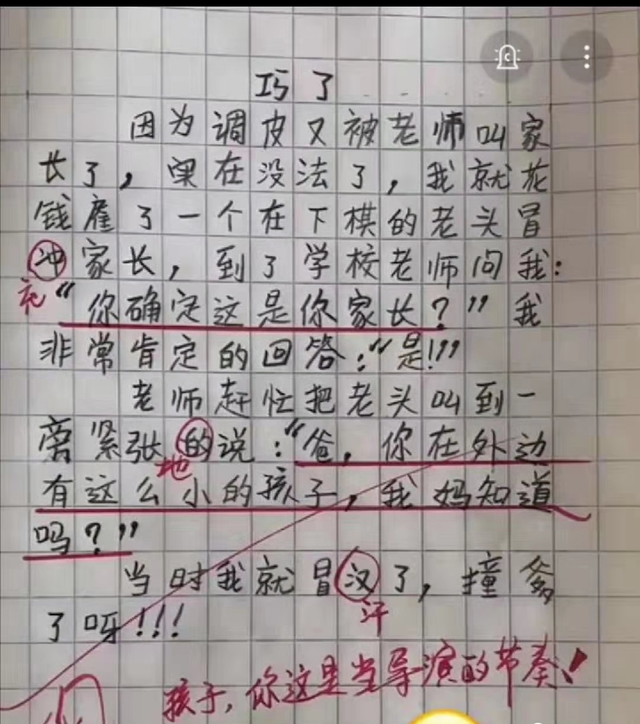 巧了
因为调皮又被老师叫家
长了，实在没法了，我就花
钱雇了一个在下棋的老头冒
冲家长，到了学校老师问我：
充
“你确定这是你家长？”我
非常肯定的回答：“是!!”
老师赶忙把老头叫到一
旁紧张的说：“爸，你在外边
地
有这么小的孩子，我妈知道
吗？”
当时我就冒汉了，撞爹
汗
了呀!!!
孩子，你这是当导演的节奏！